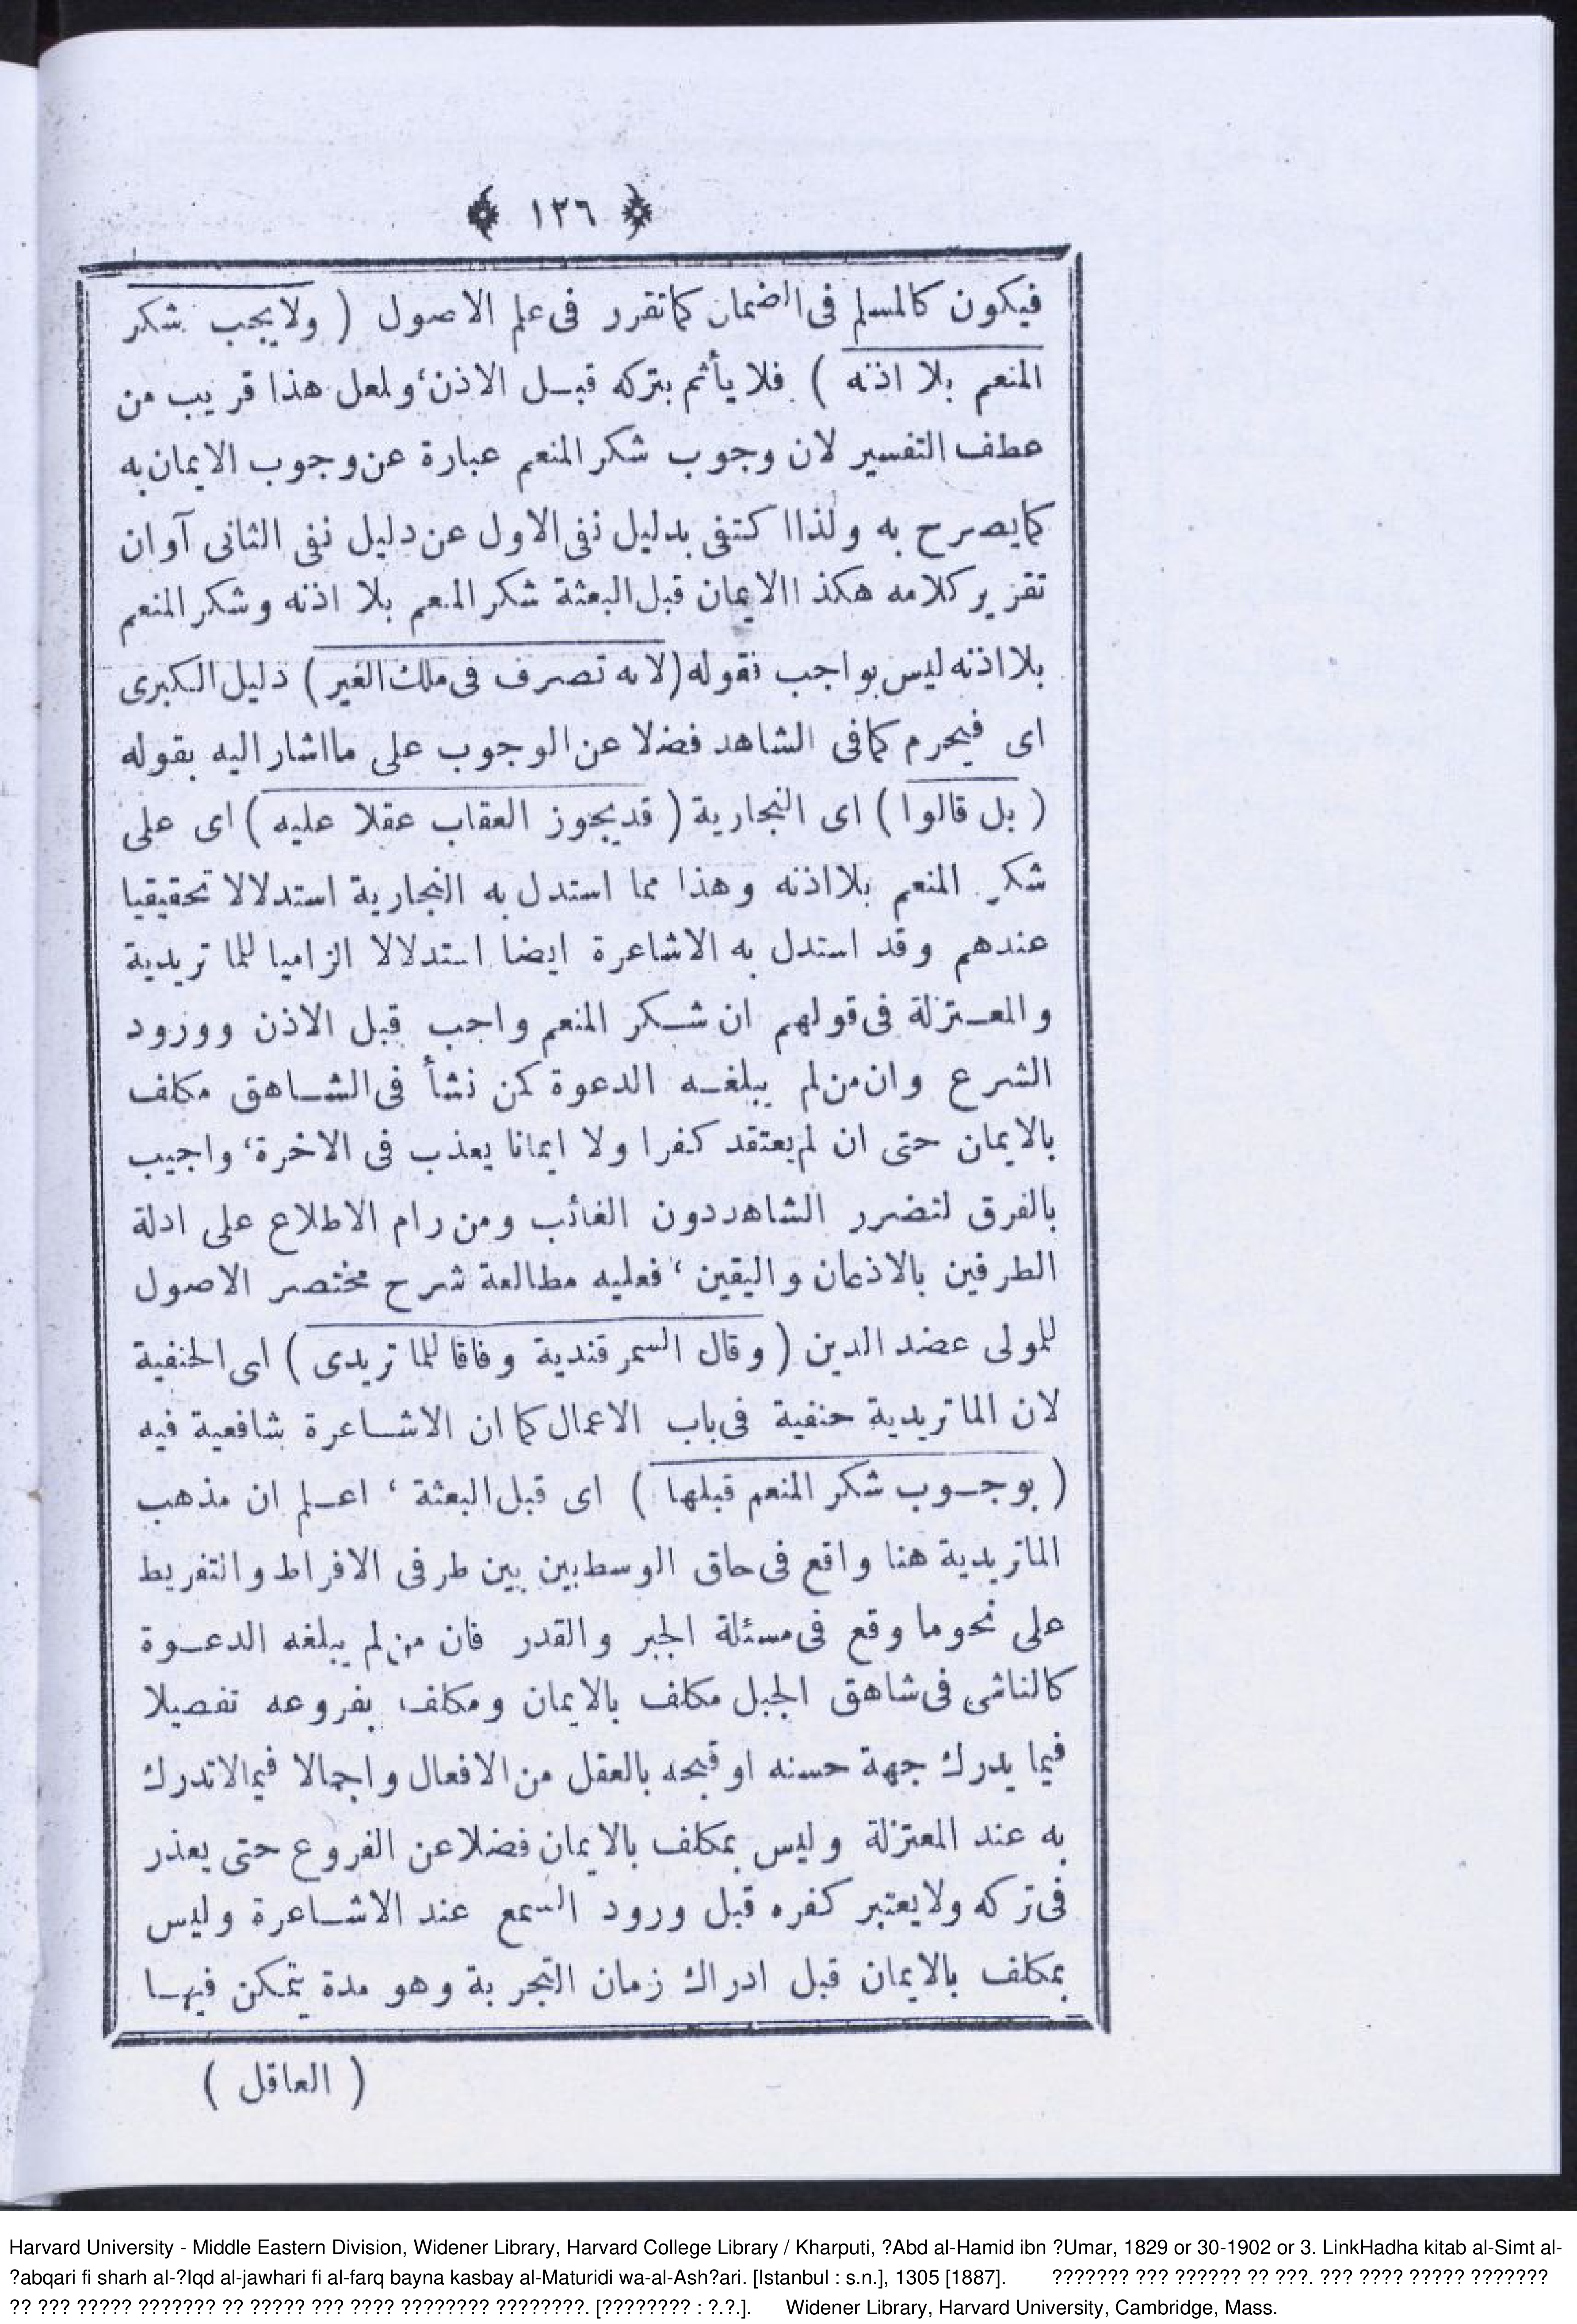 ﴿ ١٢٦ ﴾
فيكون كالمسلم فى الضمان كما تقرر فى علم الاصول ( ولا يجب شكر
المنعم بلا اذنه ) فلا يأثم بتركه قبل الاذن، ولعل هذا قريب من
عطف التفسير لان وجوب شكر المنعم عبارة عن وجوب الايمان به
كما يصرح به ولذا اكتفى بدليل نفى الاول عن دليل نفى الثانى آوان
تقرير كلامه هكذا الايمان قبل البعثة شكر المنعم بلا اذنه وشكر المنعم
بلا اذنه ليس بواجب فقوله ( لانه تصرف فى ملك الغير ) دليل الكبرى
اى فيحرم كما فى الشاهد فضلا عن الوجوب على ما اشار اليه بقوله
( بل قالوا ) اى النجارية ( قد يجوز العقاب عقلا عليه ) اى على
شكر المنعم بلا اذنه وهذا مما استدل به النجارية استدلالا تحقيقيا
عندهم وقد استدل به الاشاعرة ايضا استدلالا الزاميا للما تريدية
والمعتزلة فى قولهم ان شكر المنعم واجب قبل الاذن وورود
الشرع وان من لم يبلغه الدعوة كمن نشأ فى الشاهق مكلف
بالايمان حتى ان لم يعتقد كفرا ولا ايمانا يعذب فى الاخرة، واجيب
بالفرق لتضرر الشاهد دون الغائب ومن رام الاطلاع على ادلة
الطرفين بالاذعان واليقين، فعليه مطالعة شرح مختصر الاصول
للمولى عضد الدين ( وقال السمرقندية وفاقا للما تريدى ) اى الحنفية
لان الماتريدية حنفية فى باب الاعمال كما ان الاشاعرة شافعية فيه
( بوجوب شكر المنعم قبلها ) اى قبل البعثة، اعلم ان مذهب
الماتريدية هنا واقع فى حاق الوسط بين بين طرفى الافراط والتفريط
على نحو ما وقع فى مسئلة الجبر والقدر فان من لم يبلغه الدعوة
كالناشى فى شاهق الجبل مكلف بالايمان ومكلف بفروعه تفصيلا
فيما يدرك جهة حسنه او قبحه بالعقل من الافعال واجمالا فيما لا تدرك
به عند المعتزلة وليس بمكلف بالايمان فضلا عن الفروع حتى يعذر
فى تركه ولا يعتبر كفره قبل ورود السمع عند الاشاعرة وليس
بمكلف بالايمان قبل ادراك زمان التجربة وهو مدة يتمكن فيها
( العاقل )
Harvard University - Middle Eastern Division, Widener Library, Harvard College Library / Kharputi, ?Abd al-Hamid ibn ?Umar, 1829 or 30-1902 or 3. LinkHadha kitab al-Simt al-
?abqari fi sharh al-?Iqd al-jawhari fi al-farq bayna kasbay al-Maturidi wa-al-Ash?ari. [Istanbul : s.n.], 1305 [1887]. ??????? ??? ?????? ?? ???. ??? ???? ????? ???????
?? ??? ????? ??????? ?? ????? ??? ???? ???????? ????????. [???????? : ?.?.]. Widener Library, Harvard University, Cambridge, Mass.